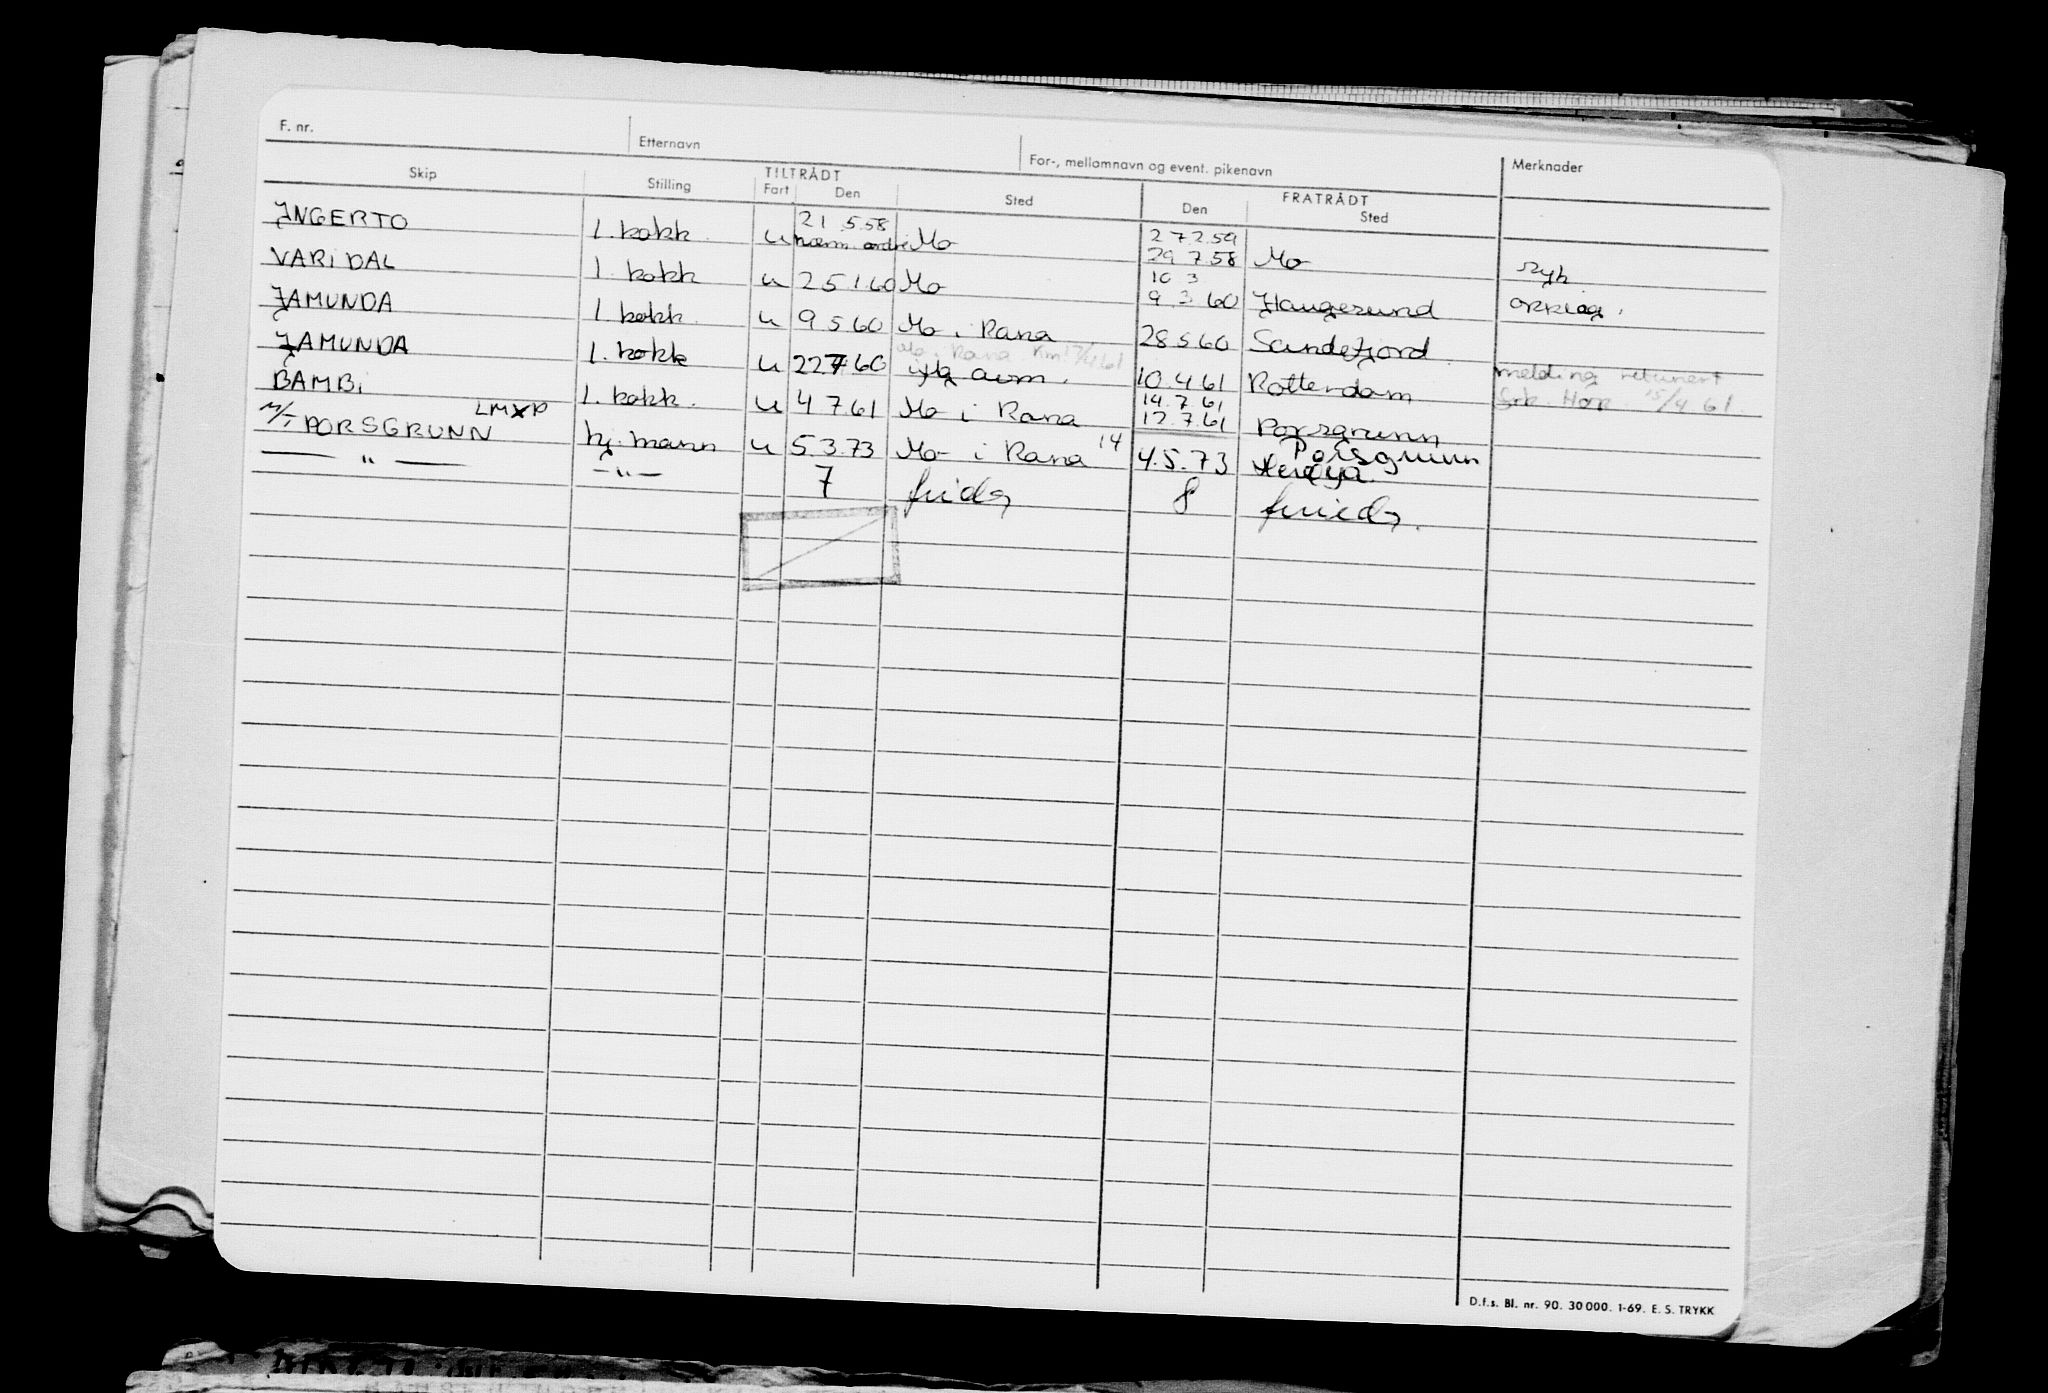 F. nr. Etternavn For-, mellomnavn og event. pikenavn Merknader
Skip Stilling TILTRÅDT Fart Den Sted FRATRÅDT Den Sted
JNGERTO 1. kokk u 21.5.58 Mo 27.2.59
29.7.58 Mo syk
VARIDAL 1. kokk u 25 1 60 Mo 10 3
9 3 60 Haugesund
JAMUNDA 1. kokk u 9 5 60 Mo i Rana 28 5 60 Sandefjord
JAMUNDA 1. kokk u 22 7 60 10.4 61 Rotterdam melding returnert
15/4 61
BAMBI 1. kokk. u 4 7 61 Mo i Rana 14.7.61
12.7.61 Porsgrunn
M/T PORSGRUNN hj. mann u 5.3.73 Mo i Rana 14 4.5.73 Porsgrunn
Herøya.
— " — — " — 7 8
D.f.s. Bl. nr. 90. 30 000. 1-69. E. S. TRYKK